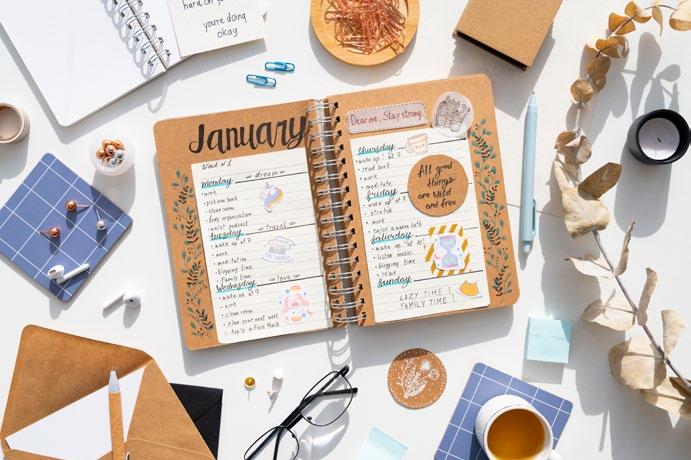 hard, on yo
you're doing
okay
January
Week N1
monday
dream
• work
• pick new book
• clean room
• body organisation
• waist podcast
tuesday
travel
• wake up at 7
• work
• meditation
• blogging time
Family time
Wednesday
love
• wake up at 7
• work
• clean room
• plan your next week
• Apply a Face Mask
Dear me, Stay strong.
thursday
wake up! at 7
• read book
• work
• meditate
friday
• wake up at 7
• stretch
• work
• enjoy a warm bath
saturday
• wake up at 10!
• listen music
• blogging time
• relax
sunday
LAZY TIME!
FAMILY TIME!
All good
things
are wild
and free